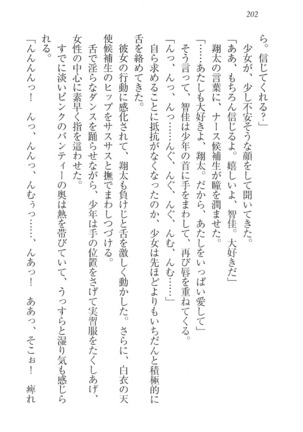 202
ら。信じてくれる？」
少女が、少し不安そうな顔をして聞いてきた。
「ああ、もちろん信じるよ。嬉しいよ、智佳。大好きだ」
翔太の言葉に、ナース候補生が瞳を潤ませた。
「……あたしも大好きよ、翔太。だから、あたしをいっぱい愛して」
そう言って、智佳は少年の首に手をまわして、再び唇を重ねてくる。
「んっ、んんっ……んぐ、んぐ、んむ、んむ……」
自ら求めることに抵抗がなくなったのか、少女は先ほどよりもいちだんと積極的に
舌を絡めてきた。
彼女の行動に感化されて、翔太も負けじと舌を激しく動かした。さらに、白衣の天
使候補生のヒップをサスサスと撫でまわしつづける。
舌で淫らなダンスを踊らせながら、少年は手の位置をさげて実習服をたくしあげ、
女性の中心に素早く指を這わせた。
すでに淡いピンクのパンティーの奥は熱を帯びていて、うっすらと湿り気も感じら
れる。
「んんんんっ！　んっ、んんっ、んむうっ……、んあっ！　ああっ、そこぉ！　痺れ